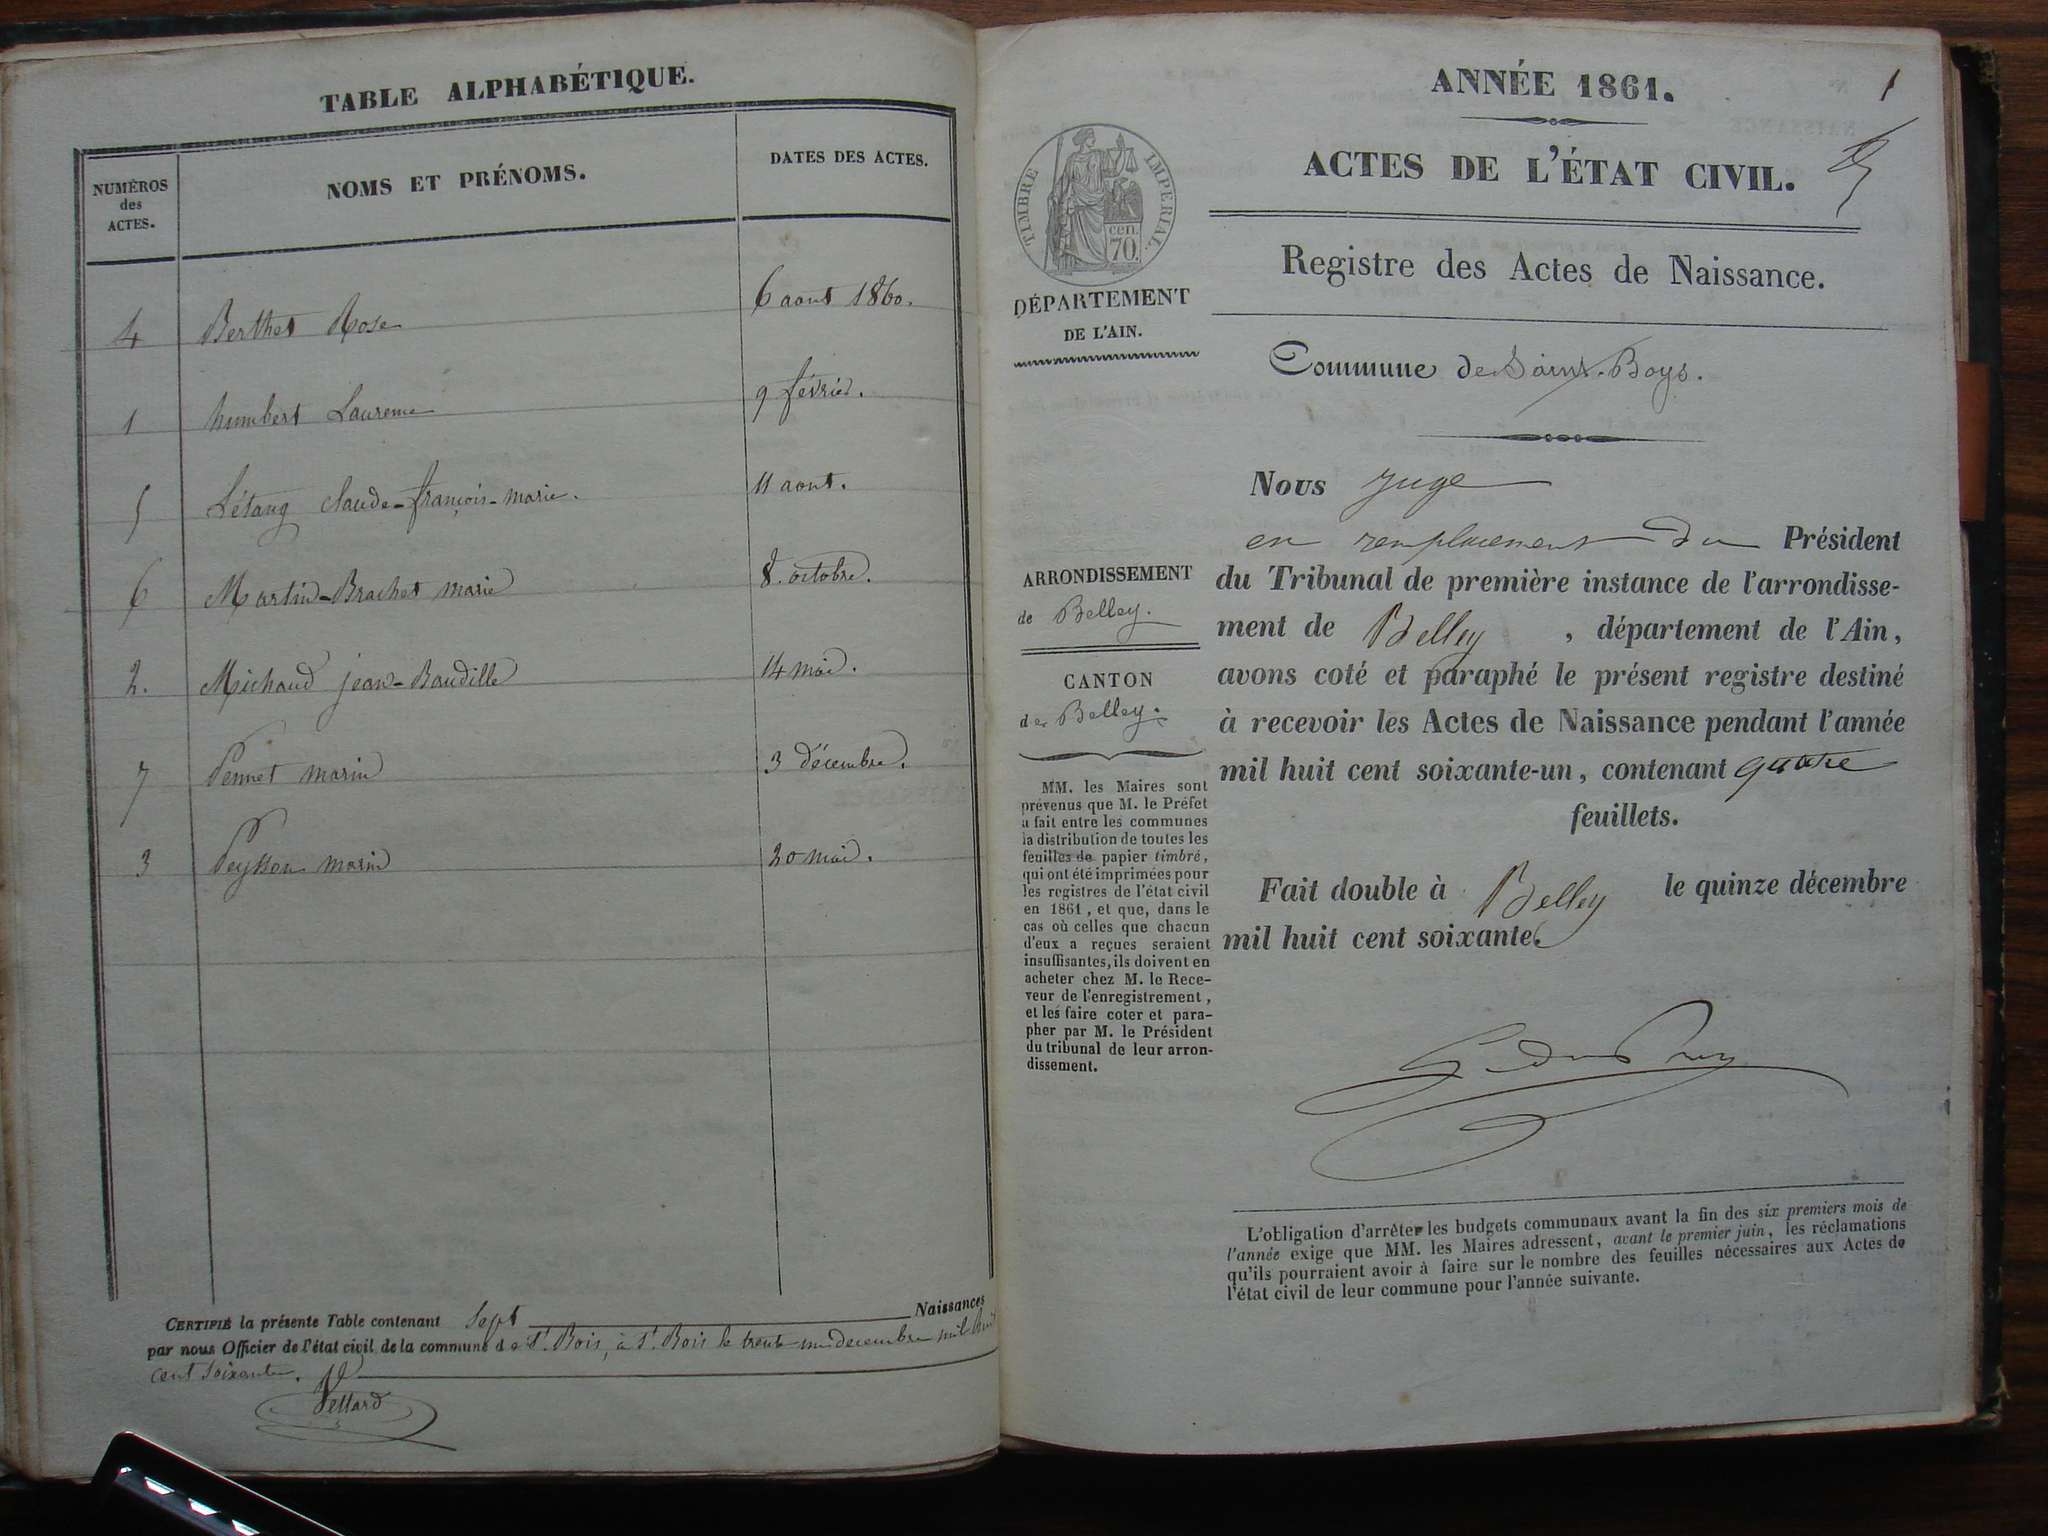 TABLE ALPHABÉTIQUE.
NUMÉROS
des
ACTES.
NOMS ET PRÉNOMS.
DATES DES ACTES.
4 Berthet Rose 6 aout 1860.
1 humbert Laurence 9 février.
5 Létang claude-françois-marie. 11 aout.
6 Martin-Brachet marie 8. octobre.
2. Michaud jean-Baudille 14 mai.
7 Pennet marin 3 décembre.
3 Peysson marin 20 mai.
CERTIFIÉ la présente Table contenant Sept Naissances
par nous Officier de l'état civil de la commune de St. Bois, à St. Bois le trente-un decembre mil huit
cent soixante.
Pettard
1
ANNÉE 1861.
ACTES DE L'ÉTAT CIVIL.
TIMBRE IMPÉRIAL.
cen.
70.
Registre des Actes de Naissance.
DÉPARTEMENT
DE L'AIN.
Commune de Saint-Boys.
ARRONDISSEMENT
de Belley.
CANTON
de Belley.
MM. les Maires sont
prévenus que M. le Préfet
a fait entre les communes
la distribution de toutes les
feuilles de papier timbré,
qui ont été imprimées pour
les registres de l'état civil
en 1861, et que, dans le
cas où celles que chacun
d'eux a reçues seraient
insuffisantes, ils doivent en
acheter chez M. le Rece-
veur de l'enregistrement,
et les faire coter et para-
pher par M. le Président
du tribunal de leur arron-
dissement.
Nous Juge
en remplacement du Président
du Tribunal de première instance de l'arrondisse-
ment de Belley, département de l'Ain,
avons coté et paraphé le présent registre destiné
à recevoir les Actes de Naissance pendant l'année
mil huit cent soixante-un, contenant quatre
feuillets.
Fait double à Belley le quinze décembre
mil huit cent soixante.
L'obligation d'arrêter les budgets communaux avant la fin des six premiers mois de
l'année exige que MM. les Maires adressent, avant le premier juin, les réclamations
qu'ils pourraient avoir à faire sur le nombre des feuilles nécessaires aux Actes de
l'état civil de leur commune pour l'année suivante.